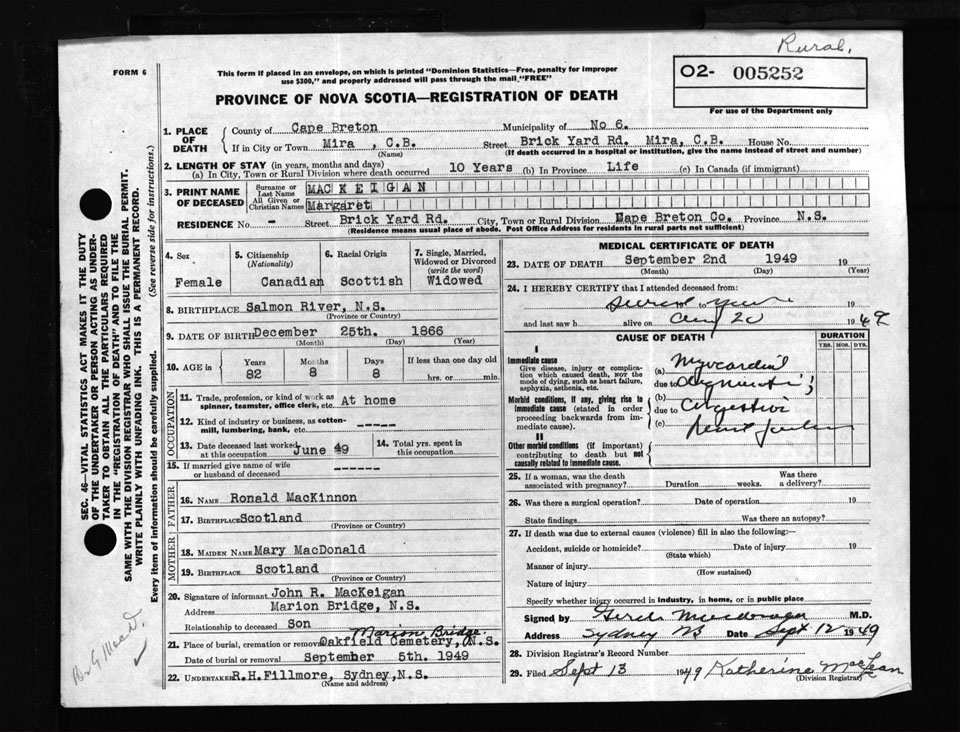 Rural.
FORM 6
This form if placed in an envelope, on which is printed "Dominion Statistics—Free, penalty for improper
use $300," and properly addressed will pass through the mail "FREE"
O2- 005252
For use of the Department only
PROVINCE OF NOVA SCOTIA—REGISTRATION OF DEATH
1. PLACE OF DEATH
County of Cape Breton Municipality of No 6.
If in City or Town Mira , C.B. Street Brick Yard Rd. Mira, C.B. House No.
(Name) (If death occurred in a hospital or institution, give the name instead of street and number)
2. LENGTH OF STAY (in years, months and days)
(a) In City, Town or Rural Division where death occurred 10 Years (b) In Province Life (c) In Canada (if immigrant)
3. PRINT NAME OF DECEASED
Surname or Last Name MACKEIGAN
All Given or Christian Names Margaret
RESIDENCE No. - Street Brick Yard Rd. City, Town or Rural Division Cape Breton Co. Province N.S.
(Residence means usual place of abode. Post Office Address for residents in rural parts not sufficient)
4. Sex
Female
5. Citizenship (Nationality)
Canadian
6. Racial Origin
Scottish
7. Single, Married, Widowed or Divorced (write the word)
Widowed
8. BIRTHPLACE Salmon River, N.S.
(Province or Country)
9. DATE OF BIRTH December 25th. 1866
(Month) (Day) (Year)
10. AGE in Years 82 Months 8 Days 8 If less than one day old hrs. or min.
OCCUPATION
11. Trade, profession, or kind of work as spinner, teamster, office clerk, etc. At home
12. Kind of industry or business, as cotton-mill, lumbering, bank, etc. -----
13. Date deceased last worked at this occupation June 49
14. Total yrs. spent in this occupation
15. If married give name of wife or husband of deceased ------
FATHER
16. NAME Ronald MacKinnon
17. BIRTHPLACE Scotland
(Province or Country)
MOTHER
18. MAIDEN NAME Mary MacDonald
19. BIRTHPLACE Scotland
(Province or Country)
20. Signature of informant John R. MacKeigan
Address Marion Bridge, N.S.
Relationship to deceased Son
Marion Bridge
21. Place of burial, cremation or removal Oakfield Cemetery, N.S.
Date of burial or removal September 5th. 1949
22. UNDERTAKER R.H.Fillmore, Sydney,N.S.
(Name and address)
MEDICAL CERTIFICATE OF DEATH
23. DATE OF DEATH September 2nd 1949 19
(Month) (Day) (Year)
24. I HEREBY CERTIFY that I attended deceased from:
to 19
and last saw h alive on Aug 20 1949
CAUSE OF DEATH
DURATION
YRS. MOS. DYS.
I
Immediate cause
Give disease, injury or complication which caused death, NOT the mode of dying, such as heart failure, asphyxia, asthenia, etc.
(a) Myocardial
due to
Morbid conditions, if any, giving rise to immediate cause (stated in order proceeding backwards from immediate cause).
(b)
due to Congestive
(c) heart failure
II
Other morbid conditions (if important) contributing to death but not causally related to immediate cause.
25. If a woman, was the death associated with pregnancy? Duration weeks. Was there a delivery?
26. Was there a surgical operation? Date of operation 19
State findings Was there an autopsy?
27. If death was due to external causes (violence) fill in also the following:—
Accident, suicide or homicide? Date of injury 19
(State which)
Manner of injury
(How sustained)
Nature of injury
Specify whether injury occurred in industry, in home, or in public place
Signed by M.D.
Address Sydney NS Date Sept 12 1949
28. Division Registrar's Record Number
29. Filed Sept 13 1949 Katherine MacLean
(Division Registrar)
SEC. 46—VITAL STATISTICS ACT MAKES IT THE DUTY
OF THE UNDERTAKER OR PERSON ACTING AS UNDER-
TAKER TO OBTAIN ALL THE PARTICULARS REQUIRED
IN THE "REGISTRATION OF DEATH" AND TO FILE THE
SAME WITH THE DIVISION REGISTRAR WHO SHALL ISSUE THE BURIAL PERMIT.
WRITE PLAINLY WITH UNFADING INK. THIS IS A PERMANENT RECORD.
Every item of information should be carefully supplied. (See reverse side for instructions.)